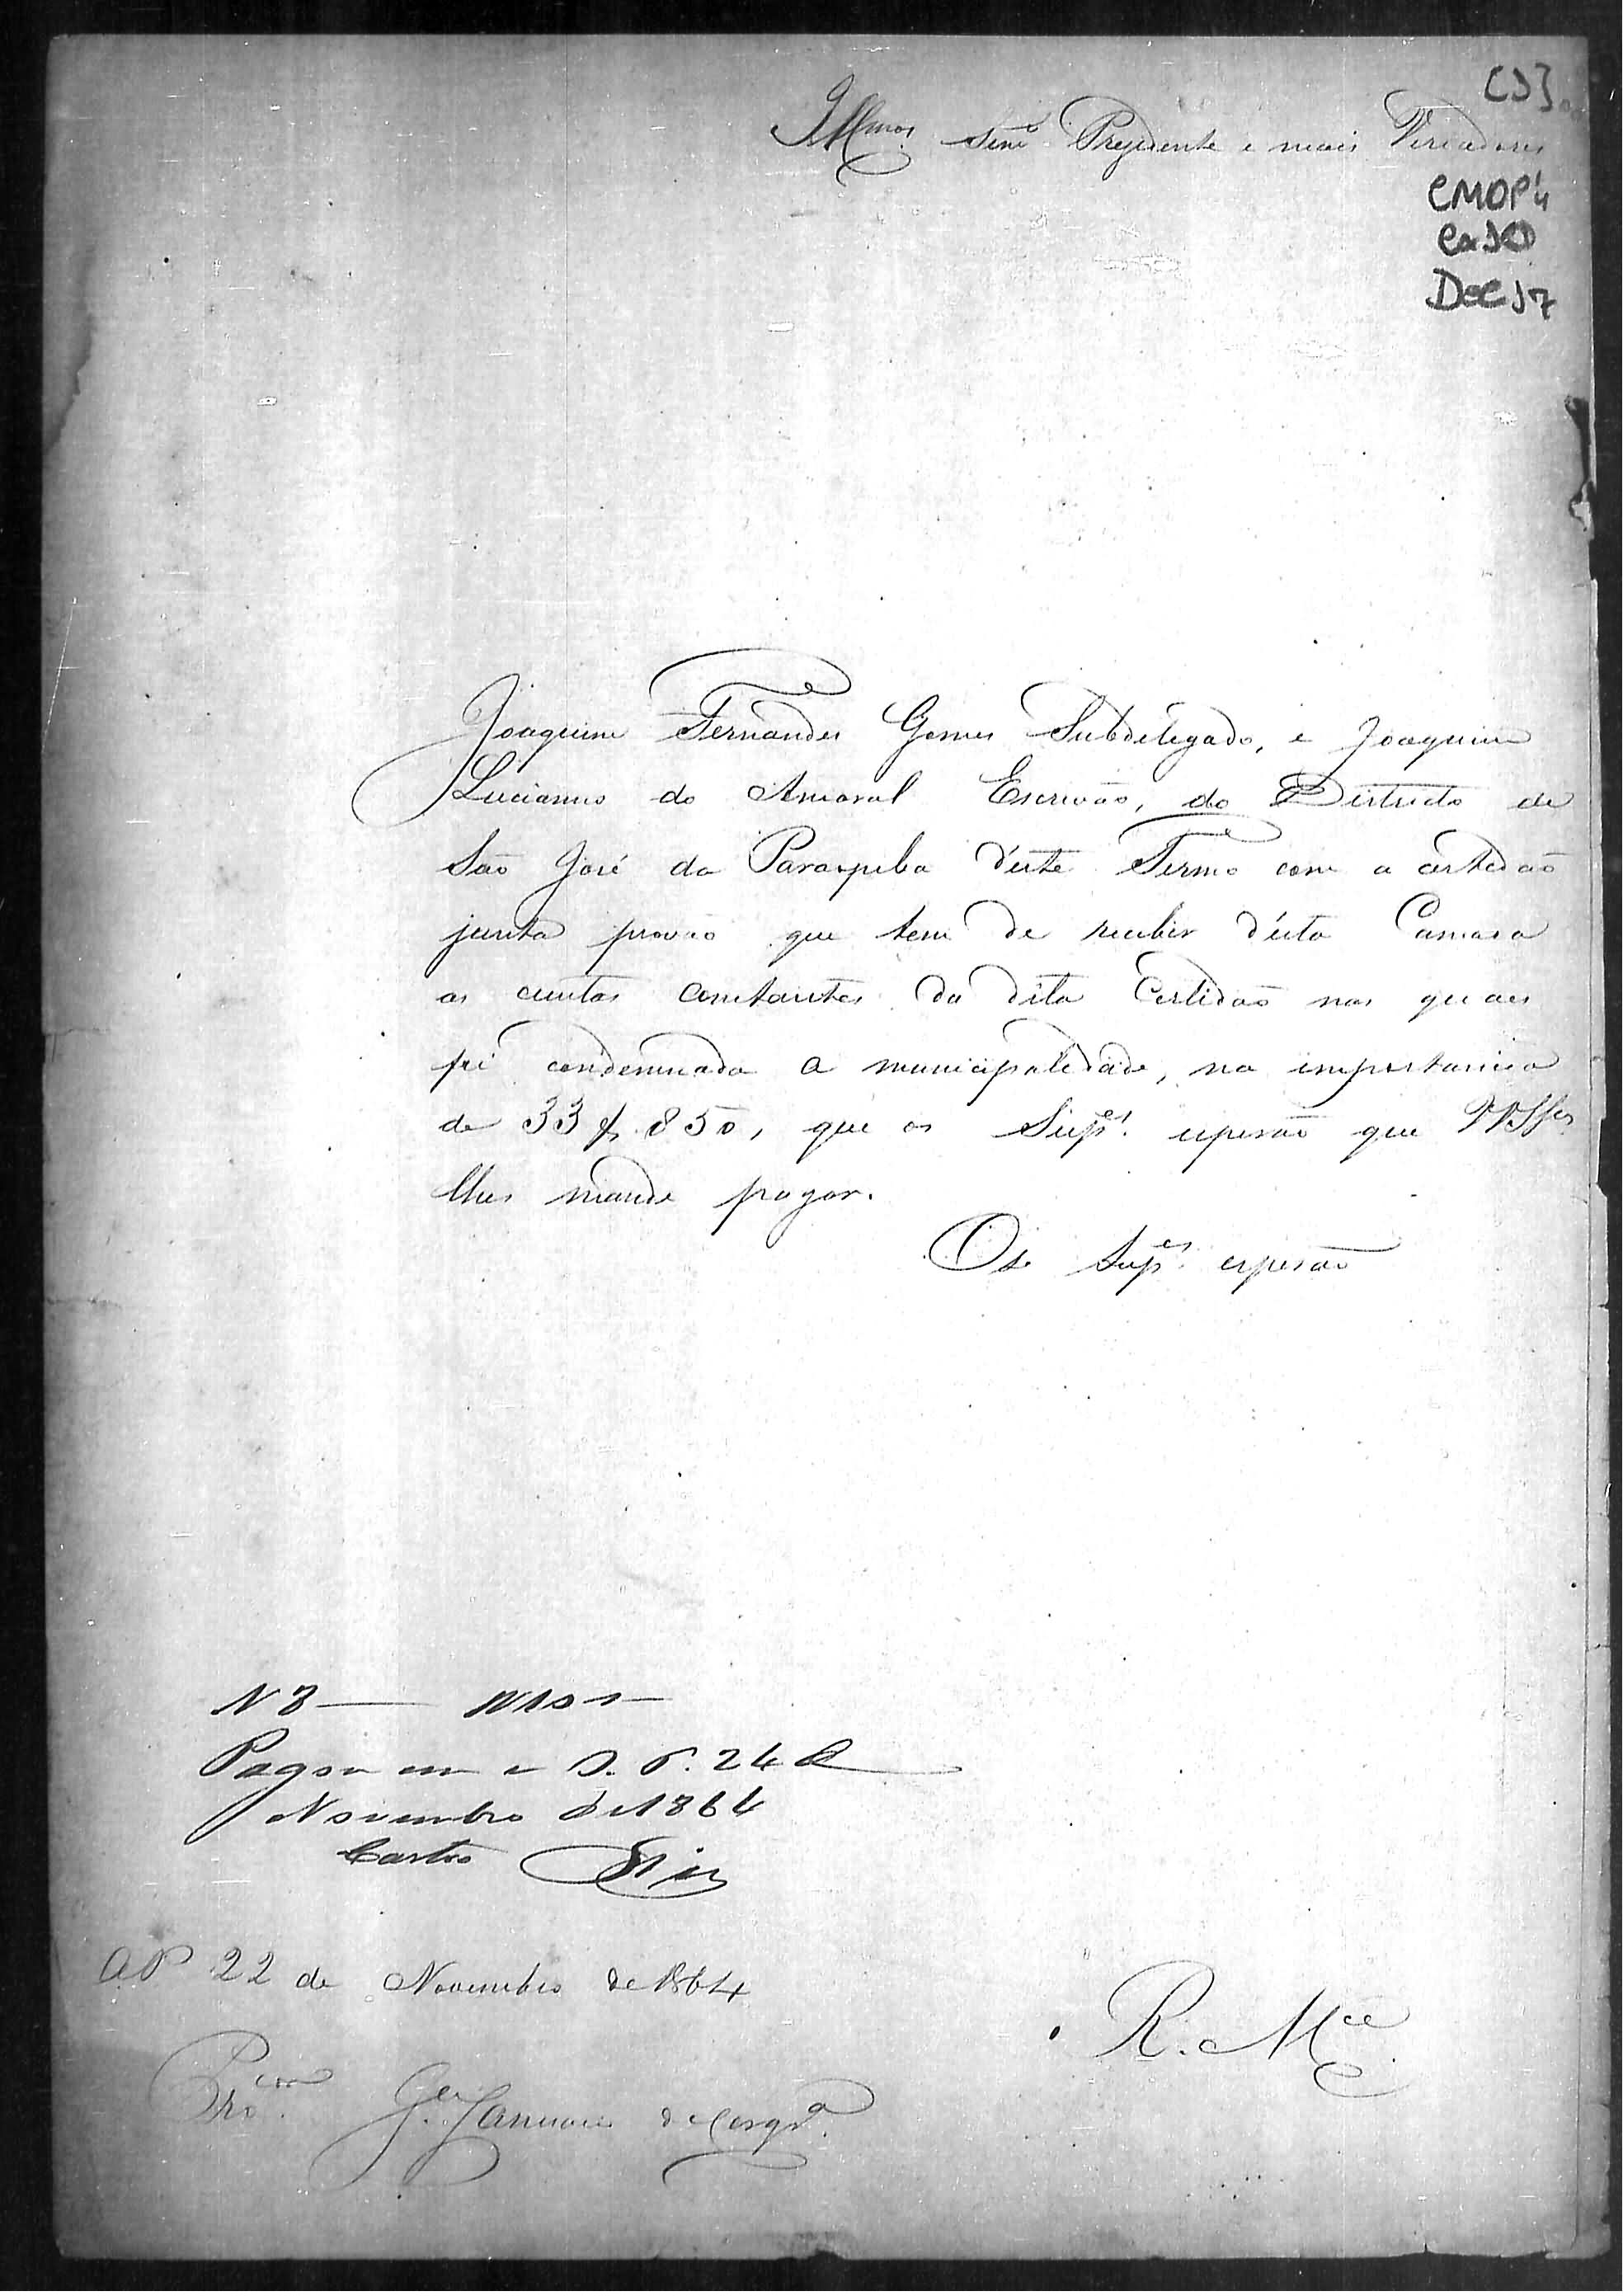 [1]
Illmos. Snrs. Prezidente e mais Veriadores
CMOP 4
Cx 10
Doc 17
Joaquim Fernandes Gomes Subdelegado, e Joaquim
Lucianno do Amaral Escrivão, do Districto de
São José da Paraopeba d'este Termo com a certidão
junta provão que tem de receber d'esta Camara
as custas constantes da dita Certidão nas quaes
foi condemnada a municipalidade, na importancia
de 33$850, que os Supes. esperão que VVSSas
lhes mande pagar.
Os Supes. esperão
N 3
Pagou em O. P. 24 de
Novembro de 1864
Castro
O P 22 de Novembro de 1864
R. Mce
Procor. Januario de Cerqra.